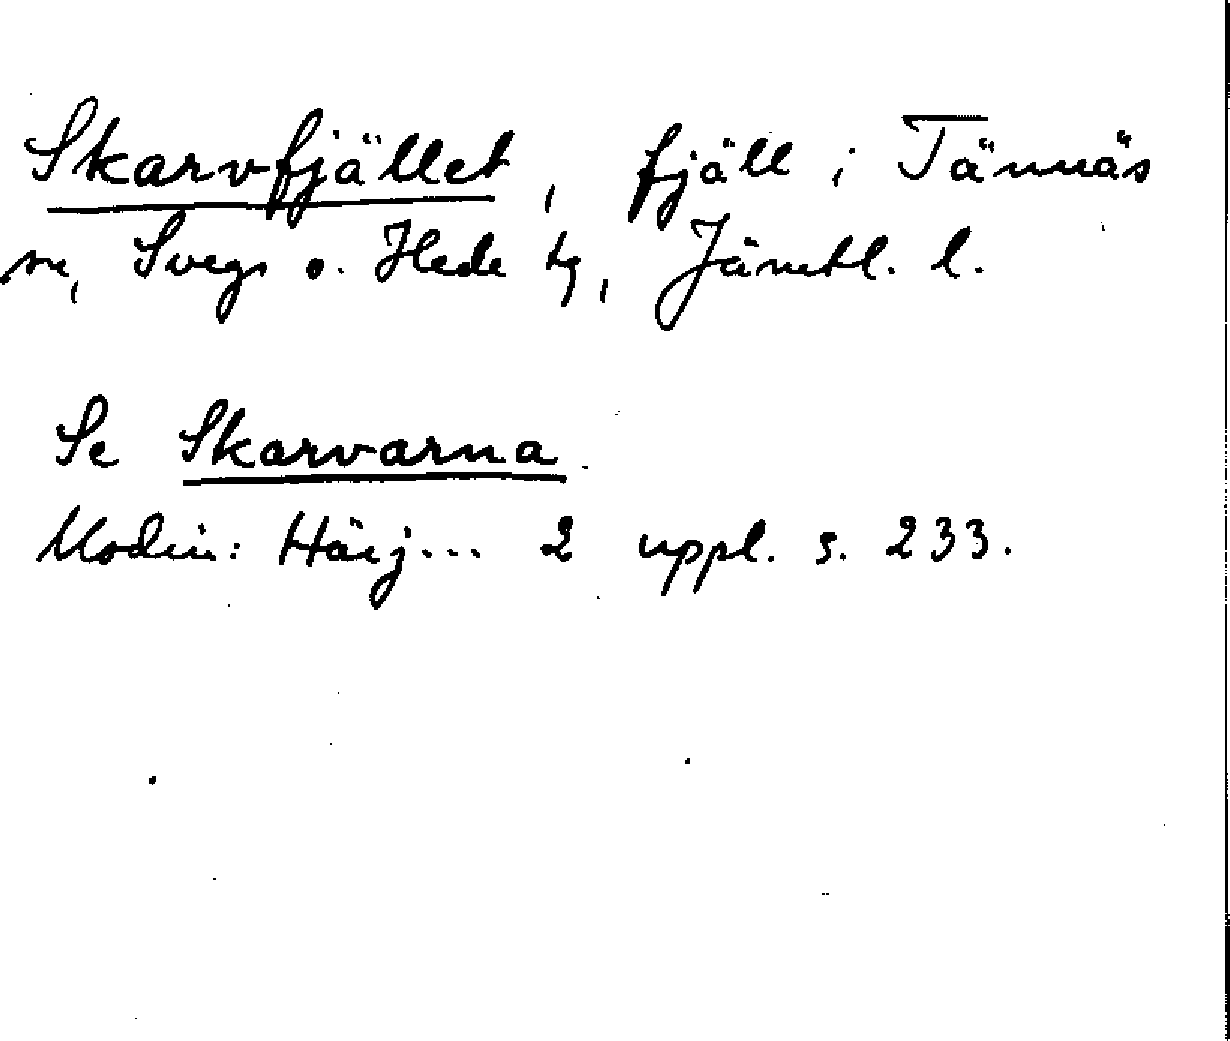 Skarvfjället, fjäll i Tännäs
sn, Svegs o. Hede tg, Jämtl. l.
Se Skarvarna.
Modin: Härj... 2 uppl. s. 233.